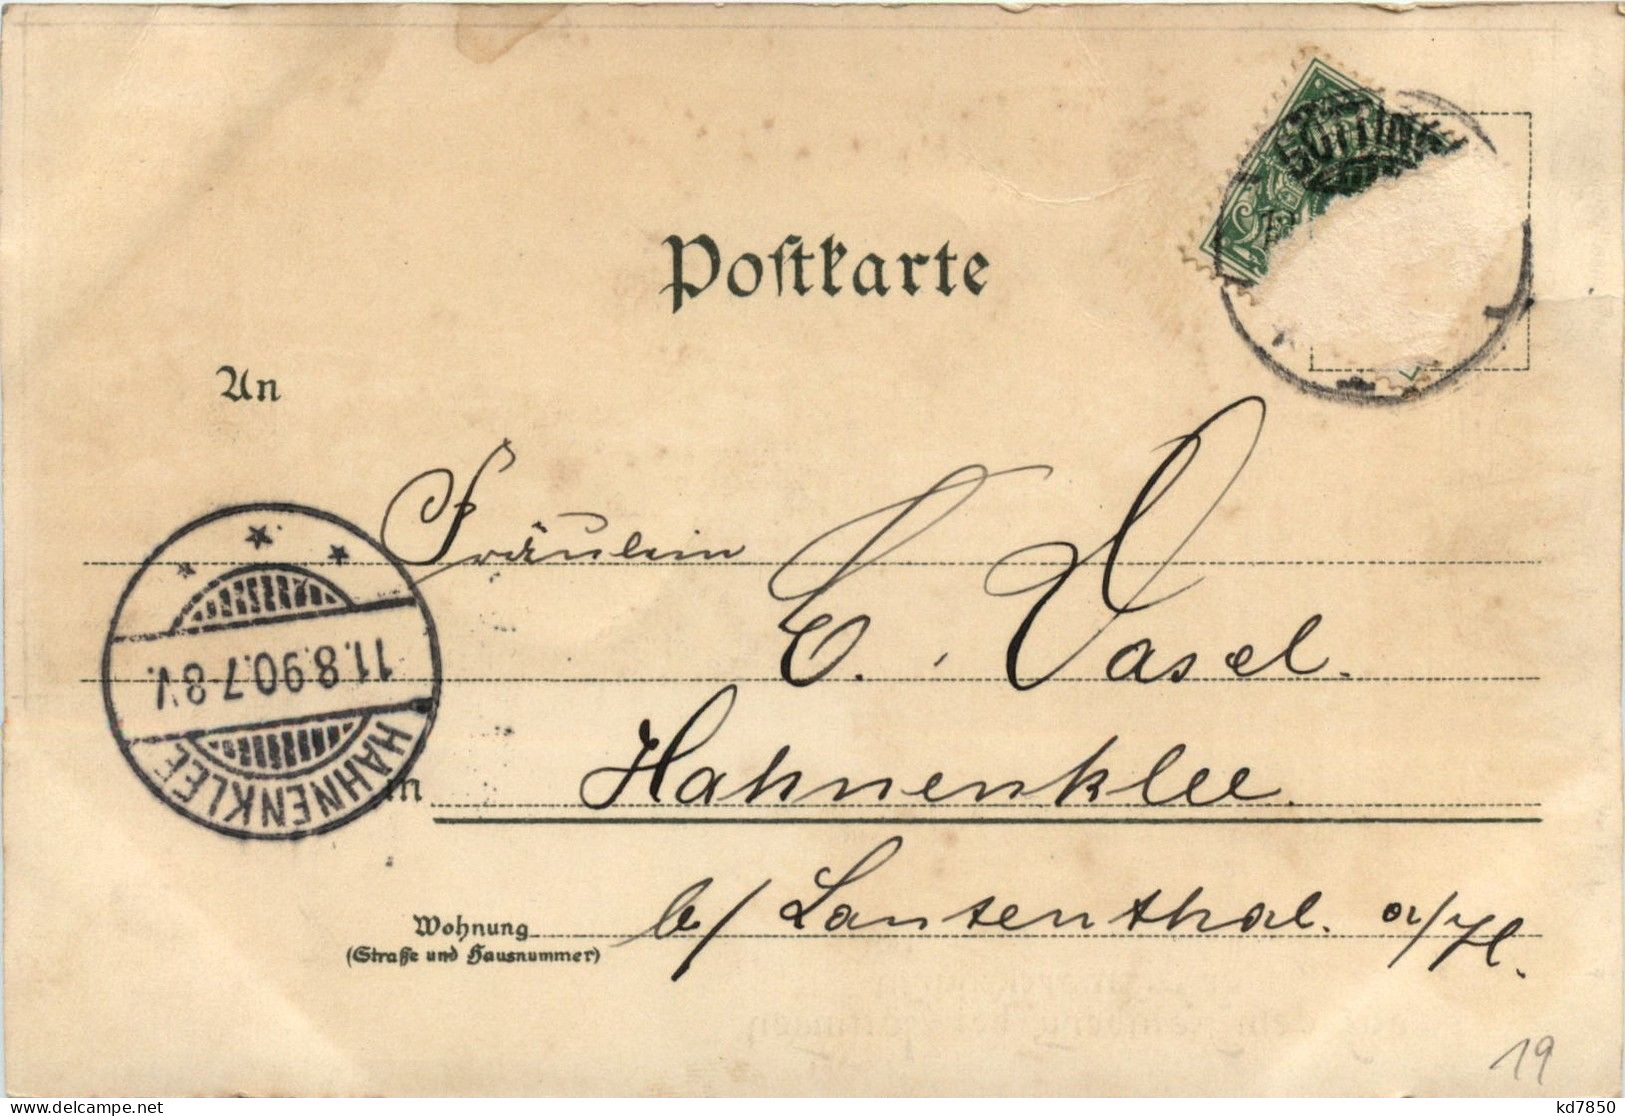 Postkarte
An
Fräulein
E. Vasel.
in Hahnenklee.
Wohnung b/ Lautenthal. a/H.
(Straße und Hausnummer)
11.8.90.7-8V.
HAHNENKLEE
19
delcampe.net
kd7850